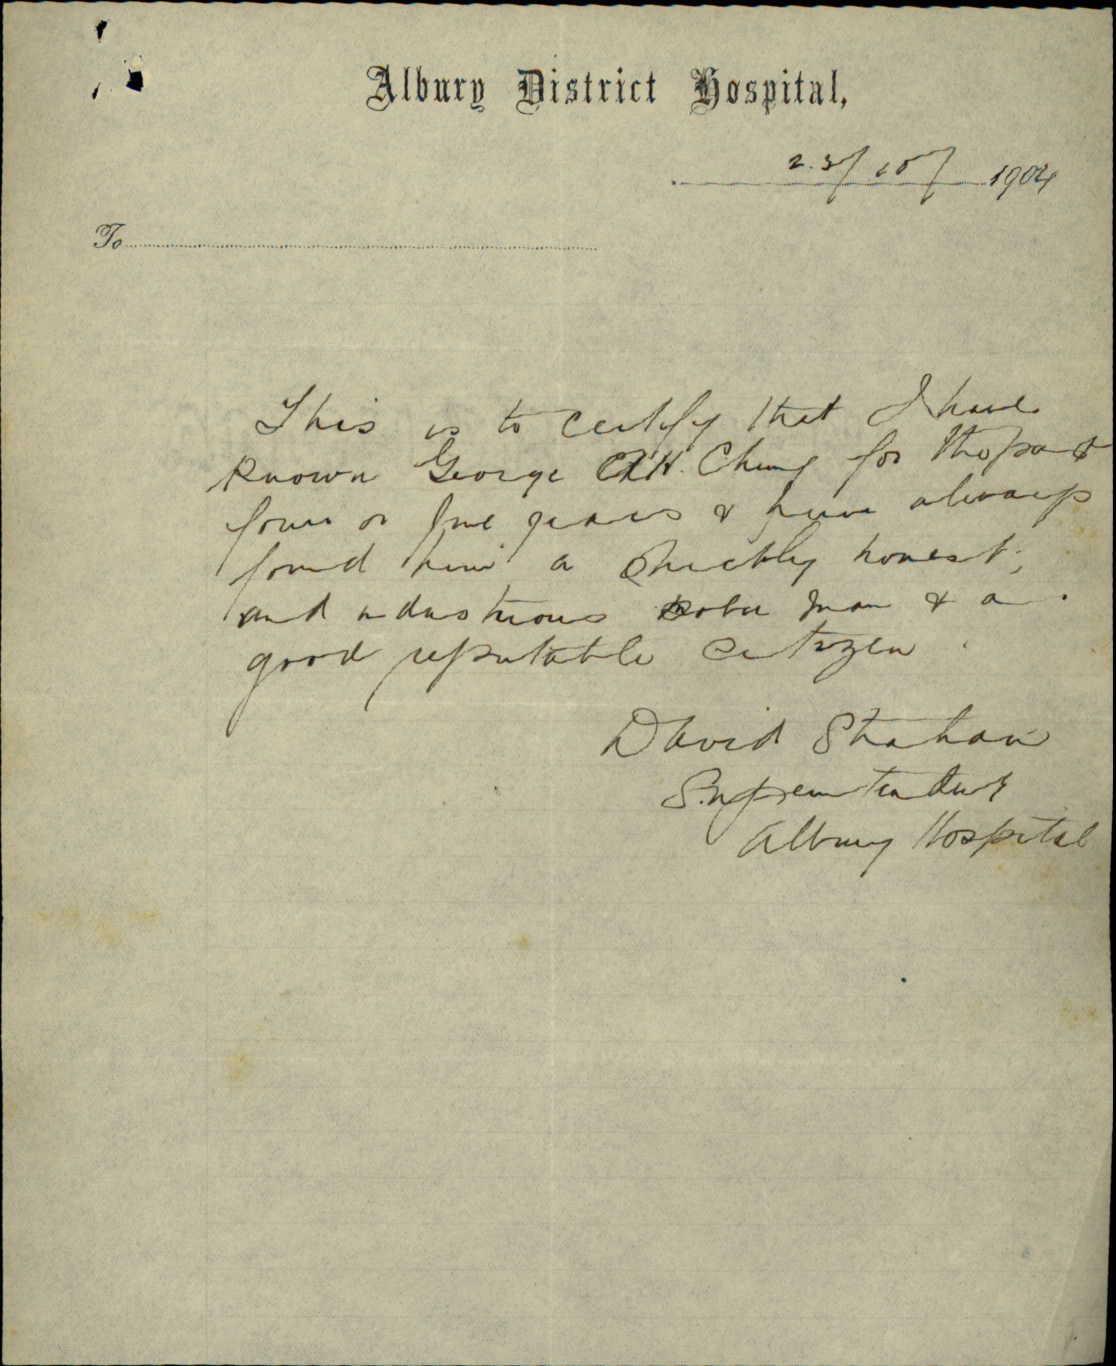 Albury District Hospital,
23/10/1904
To
This is to certify that I have
known George Ah Chung for the past
four or five years & have always
found him a strictly honest,
and industrious sober man & a
good reputable citizen.
David Strahan
Superintendent
Albury Hospital